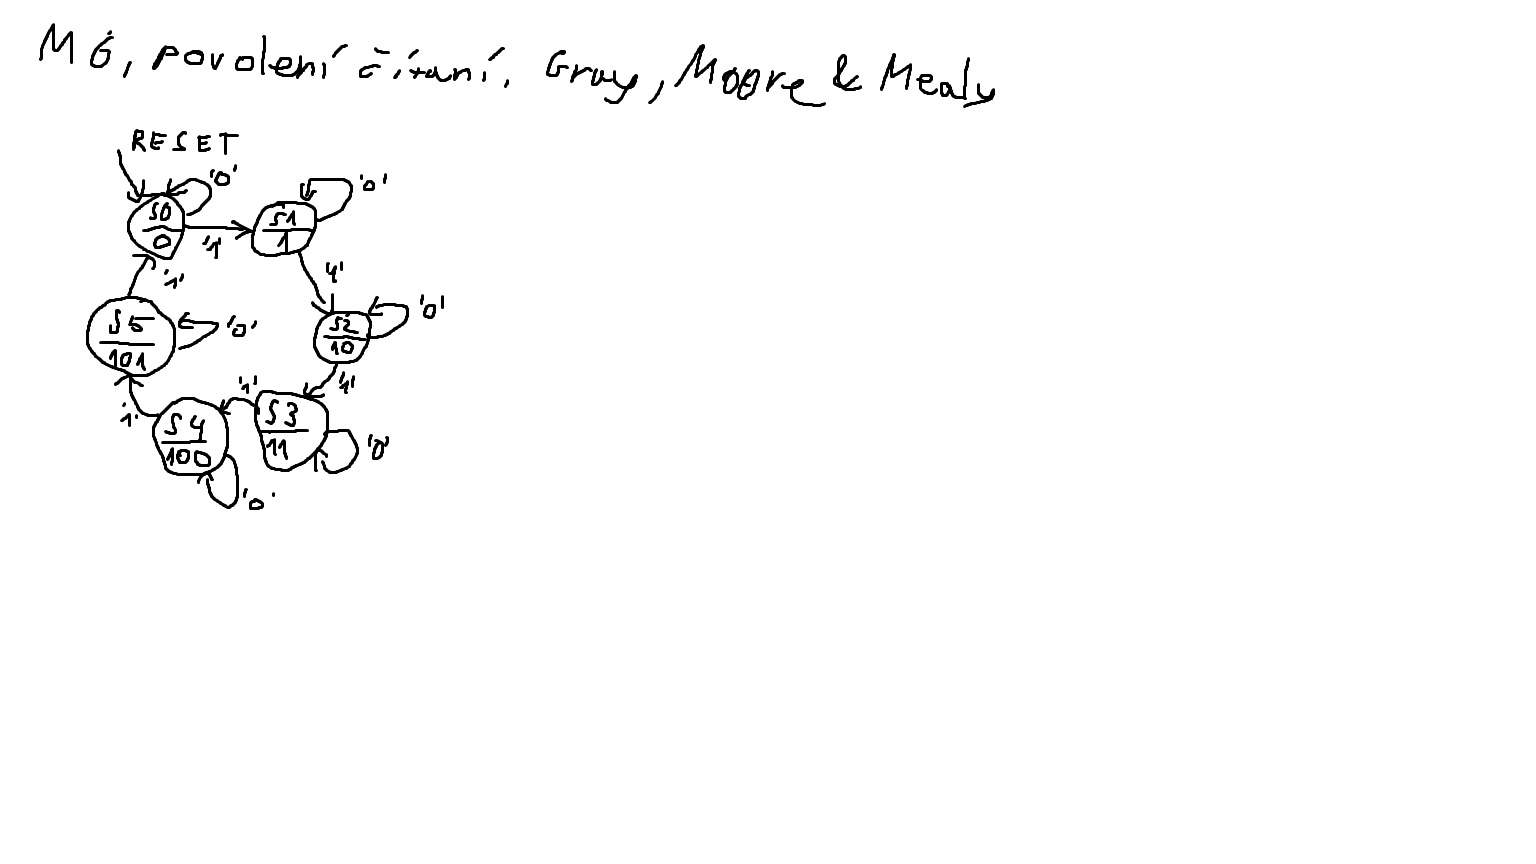 M6, povolení čítaní, Gray, Moore & Mealy
RESET
'0'
'0'
S0
0
'1'
S1
1
'1'
'1'
S5
101
'0'
S2
10
'0'
'1'
'1'
'1'
S4
100
S3
11
'0'
'0'